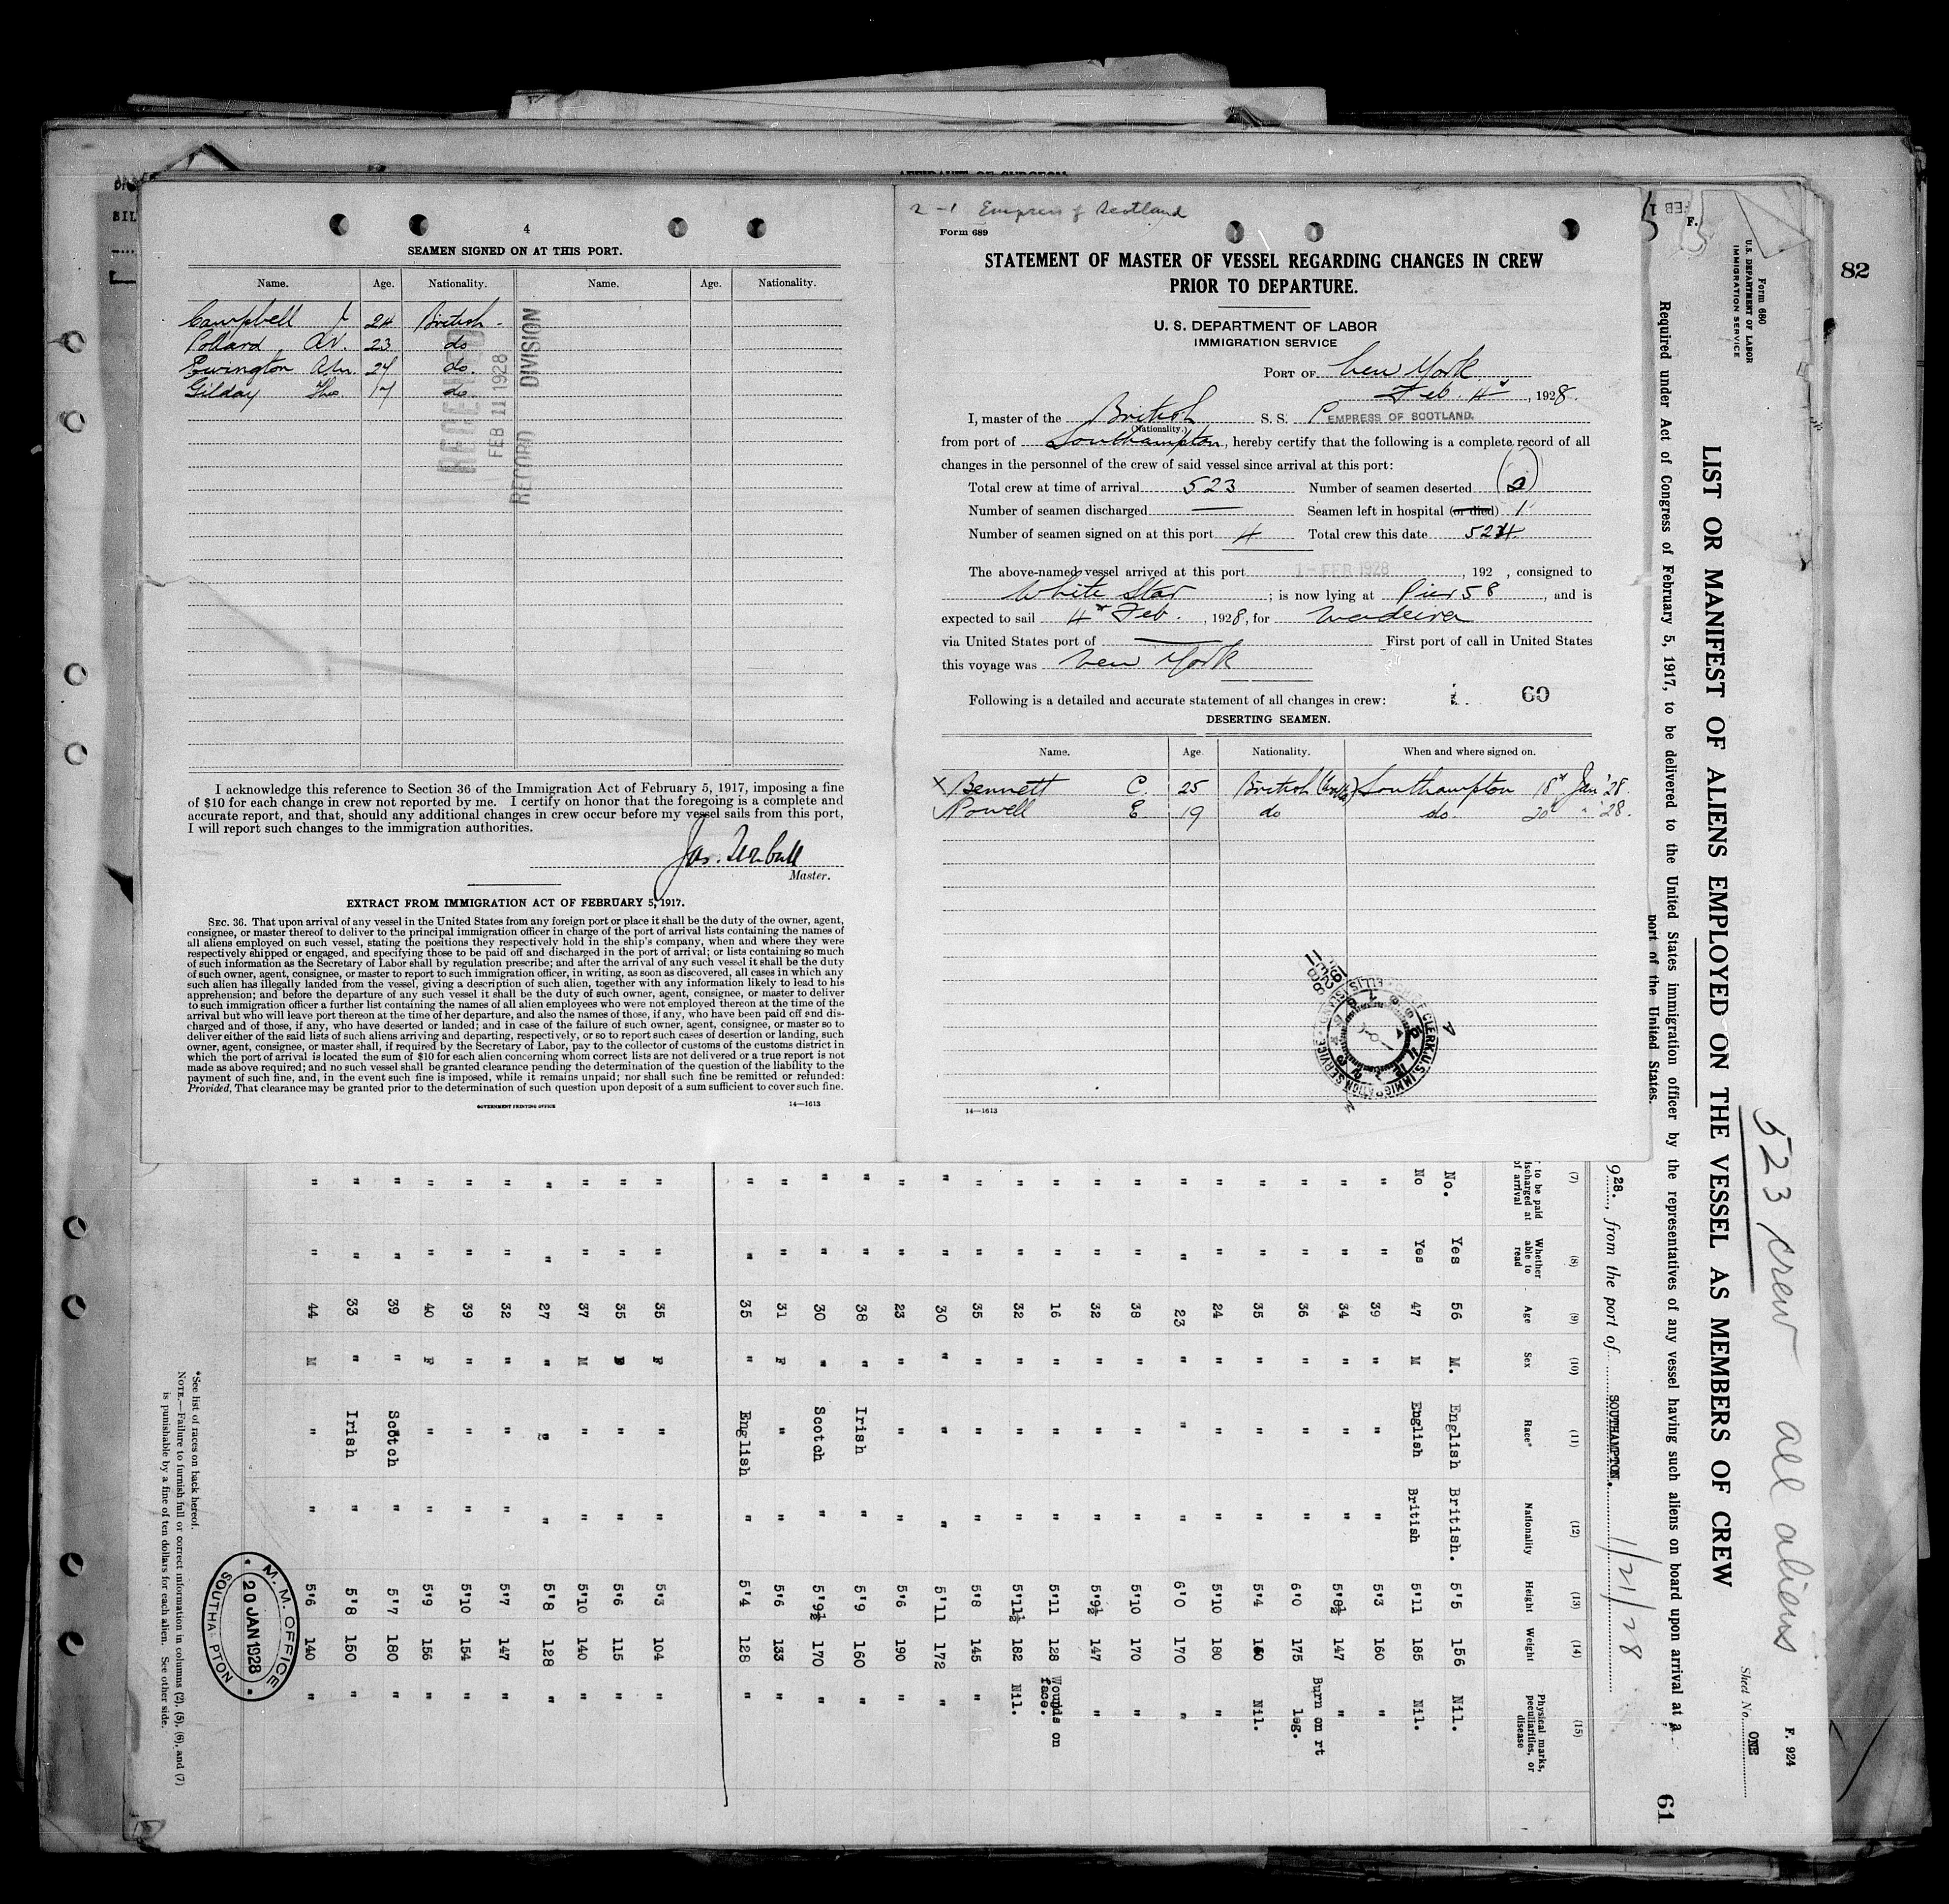 4
SEAMEN SIGNED ON AT THIS PORT.
Name. Age. Nationality. Name. Age. Nationality.
Campbell J 24 British
Pollard, 23 do
24 do.
Gilday Thos 17 do
RECEIVED
FEB 11 1928
RECORD DIVISION
I acknowledge this reference to Section 36 of the Immigration Act of February 5, 1917, imposing a fine
of $10 for each change in crew not reported by me. I certify on honor that the foregoing is a complete and
accurate report, and that, should any additional changes in crew occur before my vessel sails from this port,
I will report such changes to the immigration authorities.
Master.
EXTRACT FROM IMMIGRATION ACT OF FEBRUARY 5, 1917.
SEC. 36. That upon arrival of any vessel in the United States from any foreign port or place it shall be the duty of the owner, agent,
consignee, or master thereof to deliver to the principal immigration officer in charge of the port of arrival lists containing the names of
all aliens employed on such vessel, stating the positions they respectively hold in the ship's company, when and where they were
respectively shipped or engaged, and specifying those to be paid off and discharged in the port of arrival; or lists containing so much
of such information as the Secretary of Labor shall by regulation prescribe; and after the arrival of any such vessel it shall be the duty
of such owner, agent, consignee, or master to report to such immigration officer, in writing, as soon as discovered, all cases in which any
such alien has illegally landed from the vessel, giving a description of such alien, together with any information likely to lead to his
apprehension; and before the departure of any such vessel it shall be the duty of such owner, agent, consignee, or master to deliver
to such immigration officer a further list containing the names of all alien employees who were not employed thereon at the time of the
arrival but who will leave port thereon at the time of her departure, and also the names of those, if any, who have been paid off and dis-
charged and of those, if any, who have deserted or landed; and in case of the failure of such owner, agent, consignee, or master so to
deliver either of the said lists of such aliens arriving and departing, respectively, or so to report such cases of desertion or landing, such
owner, agent, consignee, or master shall, if required by the Secretary of Labor, pay to the collector of customs of the customs district in
which the port of arrival is located the sum of $10 for each alien concerning whom correct lists are not delivered or a true report is not
made as above required; and no such vessel shall be granted clearance pending the determination of the question of the liability to the
payment of such fine, and, in the event such fine is imposed, while it remains unpaid; nor shall such fine be remitted or refunded:
Provided, That clearance may be granted prior to the determination of such question upon deposit of a sum sufficient to cover such fine.
GOVERNMENT PRINTING OFFICE 14—1613
2-1 Empress of Scotland
Form 689
STATEMENT OF MASTER OF VESSEL REGARDING CHANGES IN CREW
PRIOR TO DEPARTURE.
U. S. DEPARTMENT OF LABOR
IMMIGRATION SERVICE
PORT OF New York
Feb. 4th, 1928.
I, master of the British S. S. EMPRESS OF SCOTLAND.
(Nationality.)
from port of Southampton, hereby certify that the following is a complete record of all
changes in the personnel of the crew of said vessel since arrival at this port:
Total crew at time of arrival 523 Number of seamen deserted (2)
Number of seamen discharged — Seamen left in hospital (or died) 1
Number of seamen signed on at this port 4 Total crew this date 524
The above-named vessel arrived at this port 1 - FEB 1928, 192 , consigned to
White Star ; is now lying at Pier 58 , and is
expected to sail 4th Feb. , 1928, for Madeira
via United States port of — First port of call in United States
this voyage was New York
Following is a detailed and accurate statement of all changes in crew: 60
DESERTING SEAMEN.
Name. Age. Nationality. When and where signed on.
x Bennett C. 25 British Southampton 18th Jan '28.
Powell E. 19 do do. 20th " '28.
14—1613
82
F. 924
Sheet No. ONE
61
523 crew all aliens
Form 680
U.S. DEPARTMENT OF LABOR
IMMIGRATION SERVICE
LIST OR MANIFEST OF ALIENS EMPLOYED ON THE VESSEL AS MEMBERS OF CREW
Required under Act of Congress of February 5, 1917, to be delivered to the United States immigration officer by the representatives of any vessel having such aliens on board upon arrival at a
port of the United States.
928., from the port of SOUTHAMPTON. 1/21/28
(7) (8) (9) (10) (11) (12) (13) (14) (15)
Whether able to read Age Sex Race* Nationality Height Weight Physical marks, peculiarities, or disease
No. Yes 56 M. English British. 5'5 156 Nil.
No Yes 47 M English British 5'11 185 Nil.
" " 39 " " " 5'3 160 "
" " 34 " " " 5'8½ 147 "
" " 36 " " " 6'0 175 Burn on rt leg.
" " 35 " " " 5'4 160 Nil.
" " 24 " " " 5'10 180 "
" " 23 " " " 6'0 170 "
" " 38 " " " 5'10 170 "
" " 32 " " " 5'9½ 147 "
" " 16 " " " 5'11 128 Wounds on face.
" " 32 " " " 5'11½ 182 Nil.
" " 35 " " " 5'8 145 "
" " 30 " " " 5'11 172 "
" " 23 " " " 5'6 190 "
" " 38 " Irish " 5'9 160 "
" " 30 " Scotch " 5'9½ 170 "
" " 31 F " " 5'6 133 "
" " 35 " English " 5'4 128 "
" " 35 F " " 5'3 104 "
" " 35 " " 5'6 115 "
" " 37 M " " 5'10 140 "
" " 27 " " " 5'8 128 "
" " 32 " " " 5'7 147 "
" " 39 " " " 5'10 154 "
" " 40 F " " 5'9 156 "
" " 39 " Scotch " 5'7 180 "
" " 33 " Irish " 5'8 150 "
" " 44 M " " 5'6 140 "
*See list of races on back hereof.
NOTE.—Failure to furnish full or correct information in columns (2), (5), (6), and (7)
is punishable by a fine of ten dollars for each alien. See other side.
M. M. OFFICE
20 JAN 1928